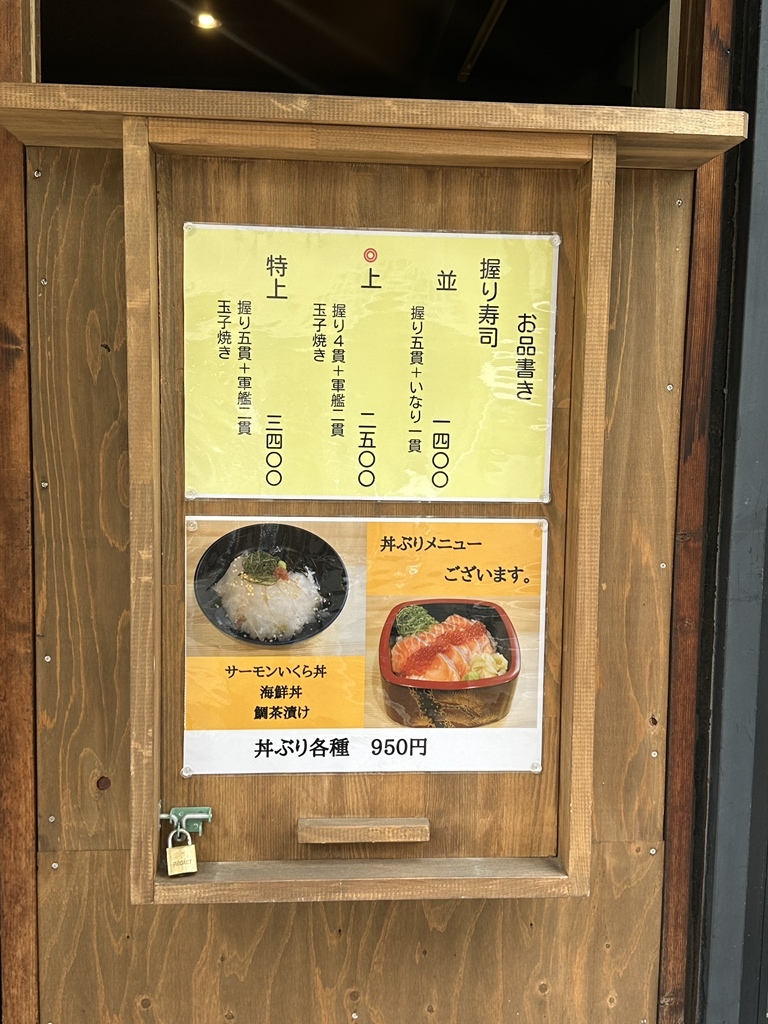 お品書き
握り寿司
並
握り五貫＋いなり一貫
一四〇〇
◎上
握り４貫＋軍艦二貫
玉子焼き
二五〇〇
特上
握り五貫＋軍艦二貫
玉子焼き
三四〇〇
丼ぶりメニュー
ございます。
サーモンいくら丼
海鮮丼
鯛茶漬け
丼ぶり各種　950円